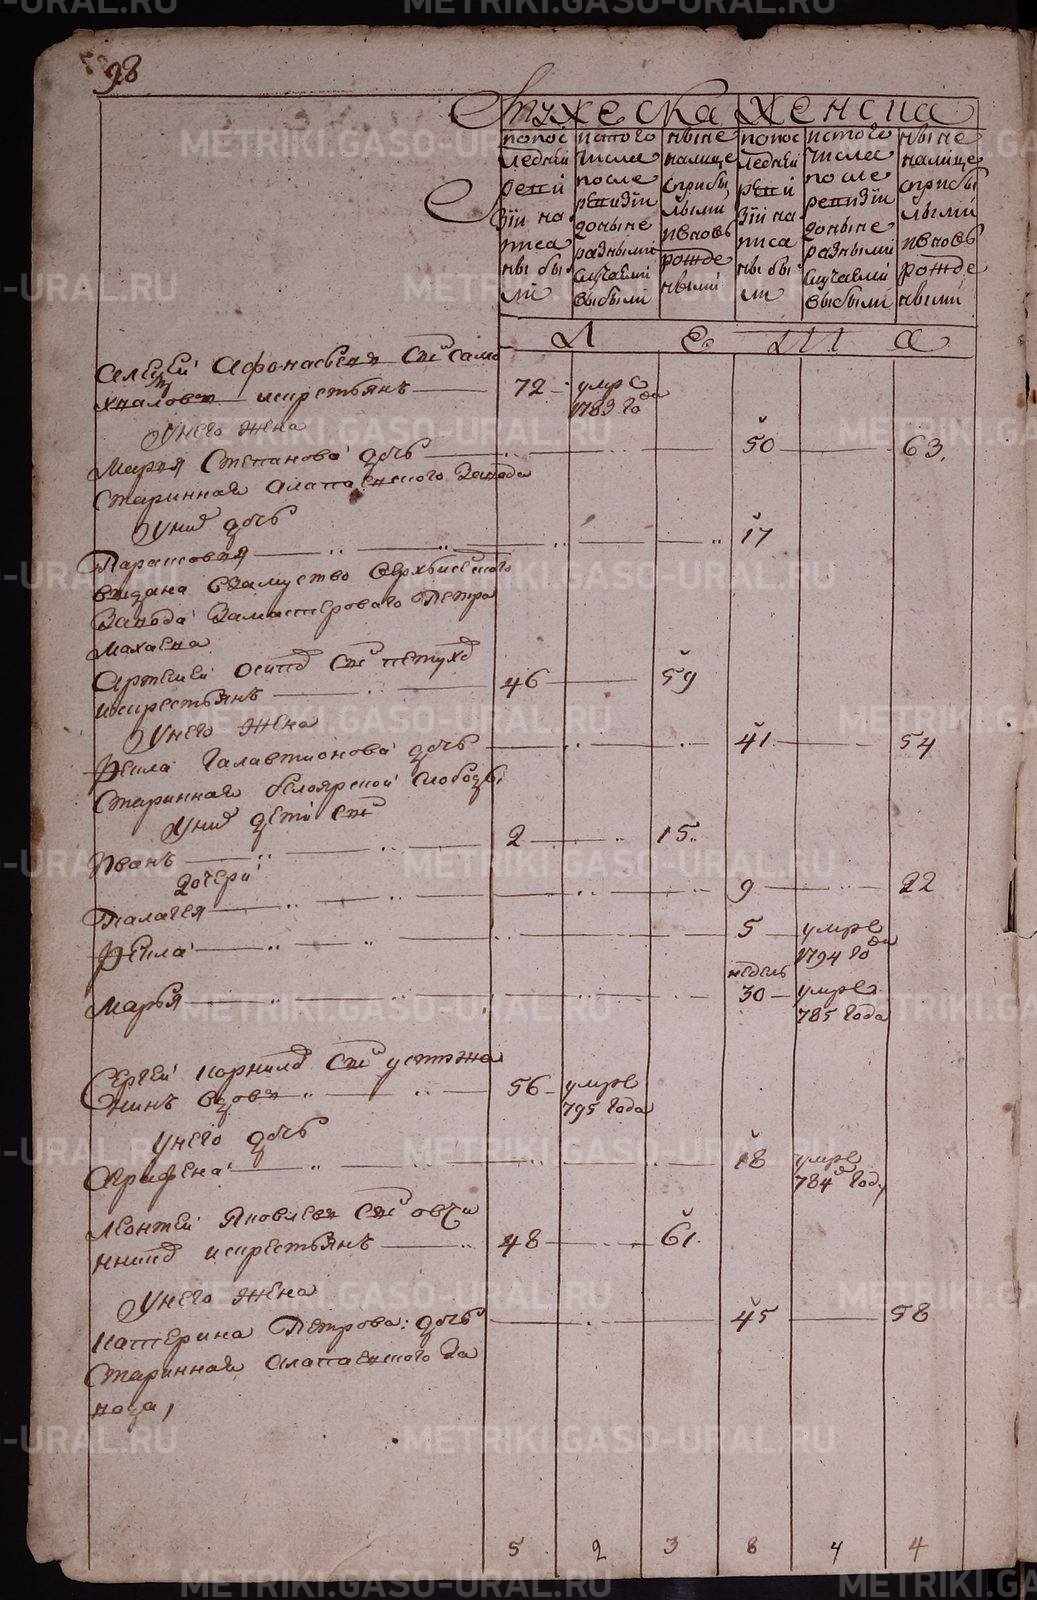 98
Мужеска Женска
по последней ревизии написаны были
ис того числа после ревизии до ныне разными случаями выбыли
ныне налице с прибылыми и вновь рожденными
по последней ревизии написаны были
ис того числа после ревизии до ныне разными случаями выбыли
ныне налице с прибылыми и вновь рожденными
Л Е Т А
Алексей Афонасьев снъ Само
хвалов ис крестьянъ 72 умре
1783 года
У него жена
Марья Степанова дочь 50 63
старинная Алапаевского завода
У них дочь
Парасковья 17
выдана взамуство Верхъисецкого
завода за мастероваго Петра
Махаева
Артемей Осипов снъ Петухов
ис крестьянъ 46 59
У него жена
Фекла Галактионова дочь 41 54
старинная Белоярской слободы
У них дети снъ
Иванъ 2 15
дочери
Палагея 9 22
Фекла 5 умре
1794 года
недель
Марья 30 умре
785 года
Сергей Корнилов снъ Устюжа
нинъ вдов 56 умре
795 года
У него дочь
Агрифена 18 умре
784 году
Леонтей Яковлев снъ Овчи
нников ис крестьянъ 48 61
У него жена
Катерина Петрова дочь 45 58
старинная Алапаевского за
вода
5 2 3 8 4 4
METRIKI.GASO-URAL.RU